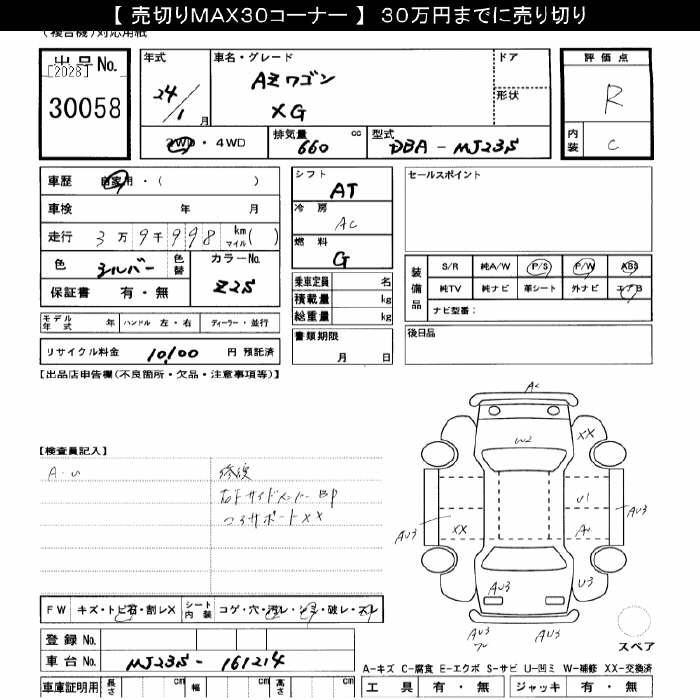 【 売切りMAX30コーナー 】 30万円までに売り切り
(複合機)対応用紙
出品No.
[2028]
30058
年式
24/1月
車名・グレード
AZワゴン
XG
ドア
形状
評価点
R
内装
C
2WD・4WD
排気量 660 cc
型式 DBA-MJ23S
車歴 自家用・( )
車検 年 月
走行 3万9千998 km マイル( )
色 シルバー 色替
カラーNo. Z2S
保証書 有・無
シフト
AT
冷房
AC
燃料
G
乗車定員 名
積載量 kg
総重量 kg
セールスポイント
装備品
S/R 純A/W P/S P/W ABS
純TV 純ナビ 革シート 外ナビ エアB
ナビ型番:
モデル年式 年 ハンドル 左・右 ディーラー・並行
書類期限
月 日
後日品
リサイクル料金 10,100 円 預託済
【出品店申告欄(不良箇所・欠品・注意事項等)】
【検査員記入】
A・U
修復
右Fサイドメンバー BP
コアサポート XX
A
W2
XX
U1
AU3
XX
A
AU3
U3
AU3
AU3
AU3
スペア
FW キズ・トビ石・割レX
シート内装 コゲ・穴・汚レ・シミ・破レ・スレ
登録No.
車台No. MJ23S-161214
車庫証明用 長さ cm 幅 cm 高さ cm
A-キズ C-腐食 E-エクボ S-サビ U-凹ミ W-補修 XX-交換済
工具 有・無 ジャッキ 有・無